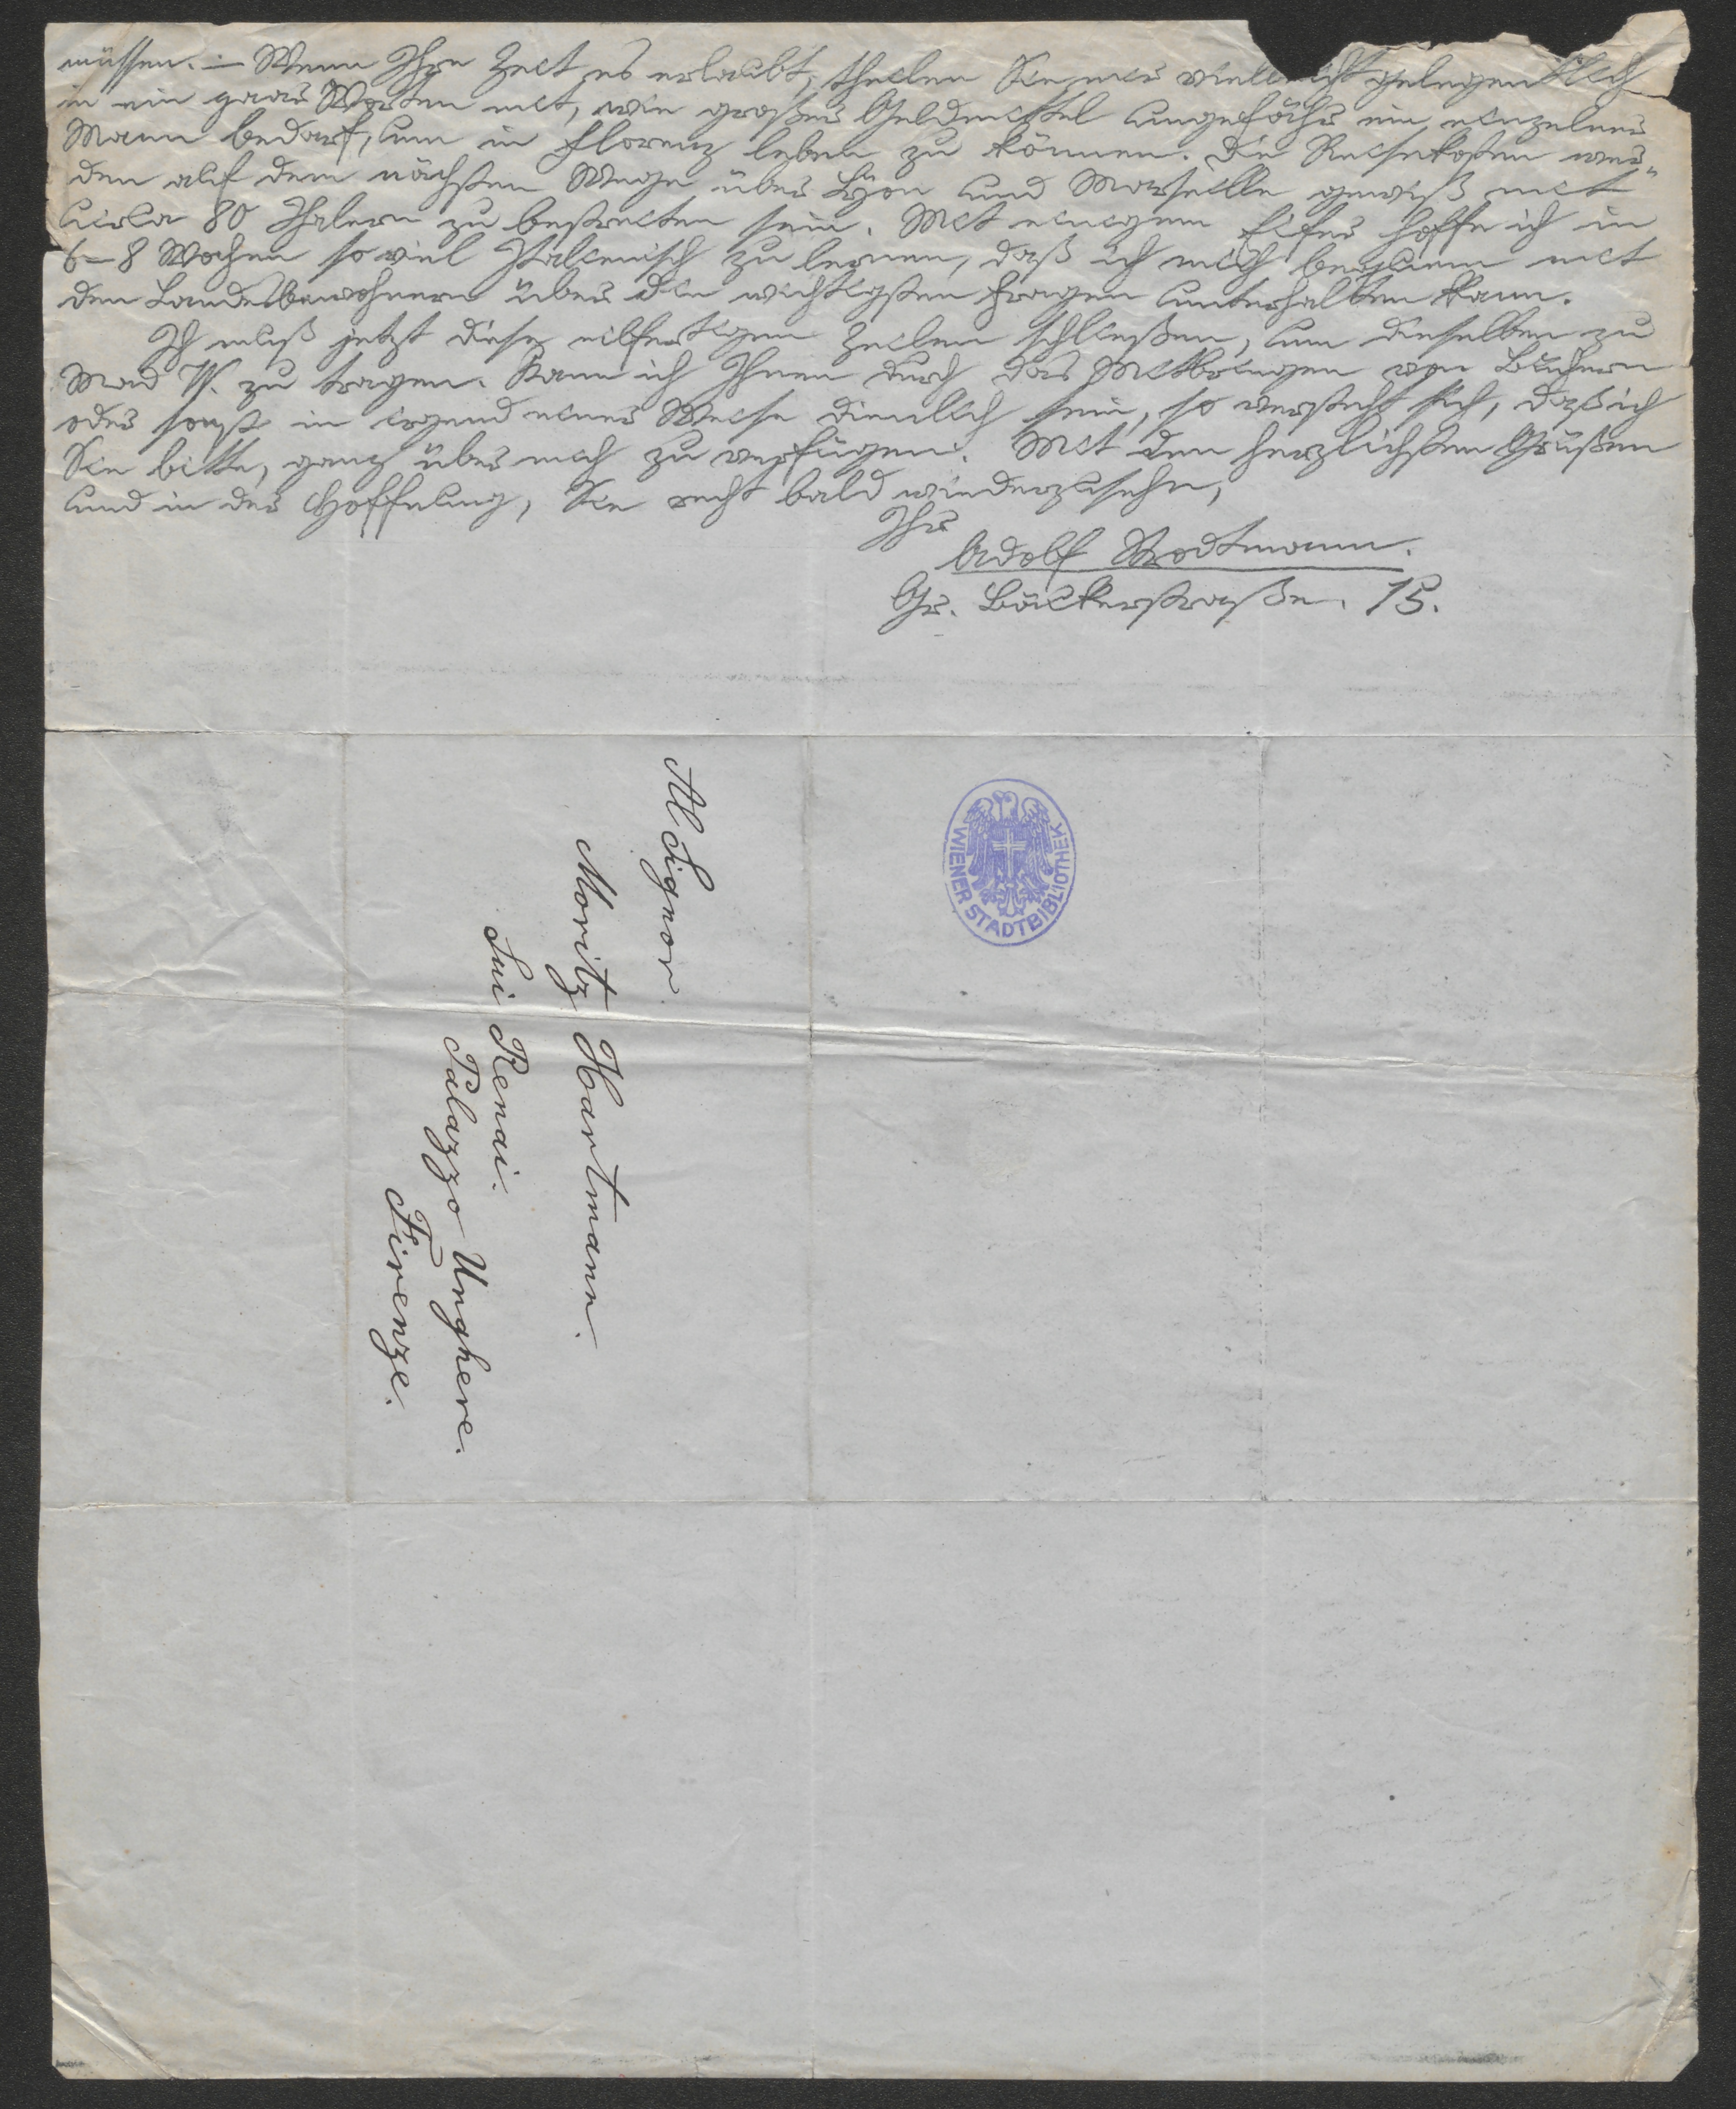 müssen. – Wenn Ihre Zeit es erlaubt, theilen Sie mir vielleicht gelegentlich
in ein paar Worten mit, wie großer Geldmittel ungefähr ein einzelner
Mann bedarf, um in Florenz leben zu können. Die Reisekosten wer-
den auf dem nächsten Wege über Lyon und Marseille gewiß mit
circa 80 Thalern zu bestreiten sein. Mit einigem Eifer hoffe ich in
6–8 Wochen so viel Italienisch zu lernen, daß ich mich bequem mit
den Landesbewohnern über die wichtigsten Fragen unterhalten kann.
Ich muß jetzt diese eilfertigen Zeilen schließen, um dieselben zu
Mad W. zu tragen. Kann ich Ihnen durch das Mitbringen von Büchern
oder sonst in irgend einer Weise dienlich sein, so versteht sich, daß ich
Sie bitte, ganz über mich zu verfügen. Mit den herzlichsten Grüßen
und in der Hoffnung, Sie recht bald wiederzusehn,
Ihr
Adolf Strodtmann.
Gr. Bäckerstraße. 15.
Al Signor
Moritz Hartmann.
Sui Renai.
Palazzo Unghere.
Firenze.
WIENER STADTBIBLIOTHEK